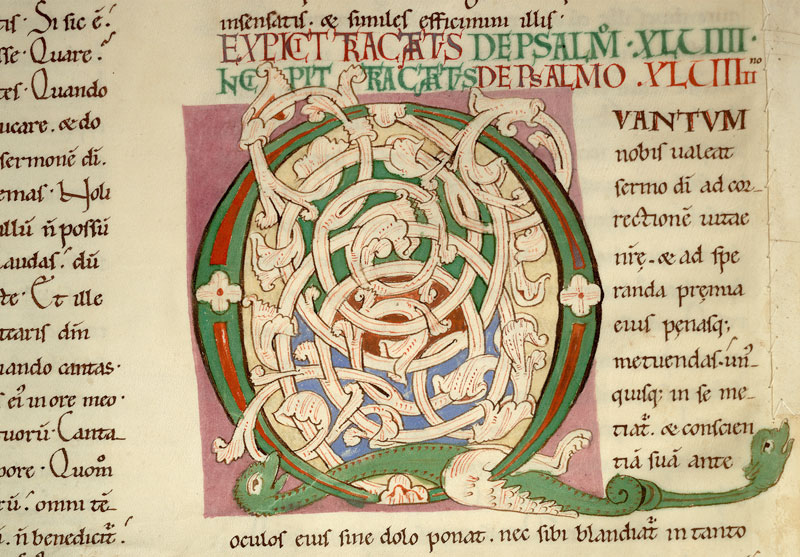 tis . Si sic ē.
sse . Quare .
tes . Quando
ucare . & do
sermonē di .
emas . Noli
illū n̄ possū
laudas . dū
ste . Et ille
ttaris dm̄
uando cantas .
s ei in ore meo .
tuorū . Canta
pore . Quom̊
rū . omni tē
. n̄ benedicit̄ .
insensatis . & similes efficimini illis .
EXPLICIT TRACTATUS DE PSALM̊ . XLVIIII .
INCIPIT TRACTATUS DE PSALMO . XLVIIII no
QVANTVM
nobis ualeat
sermo di ad cor
rectionē uitae
nrē . & ad spe
randa pręmia
eius pęnasq;
metuendas . un̄
quisq; in se me
tiat̄ . & conscien
tiā suā ante
oculos eius sine dolo ponat . nec sibi blandiat̄ in tanto